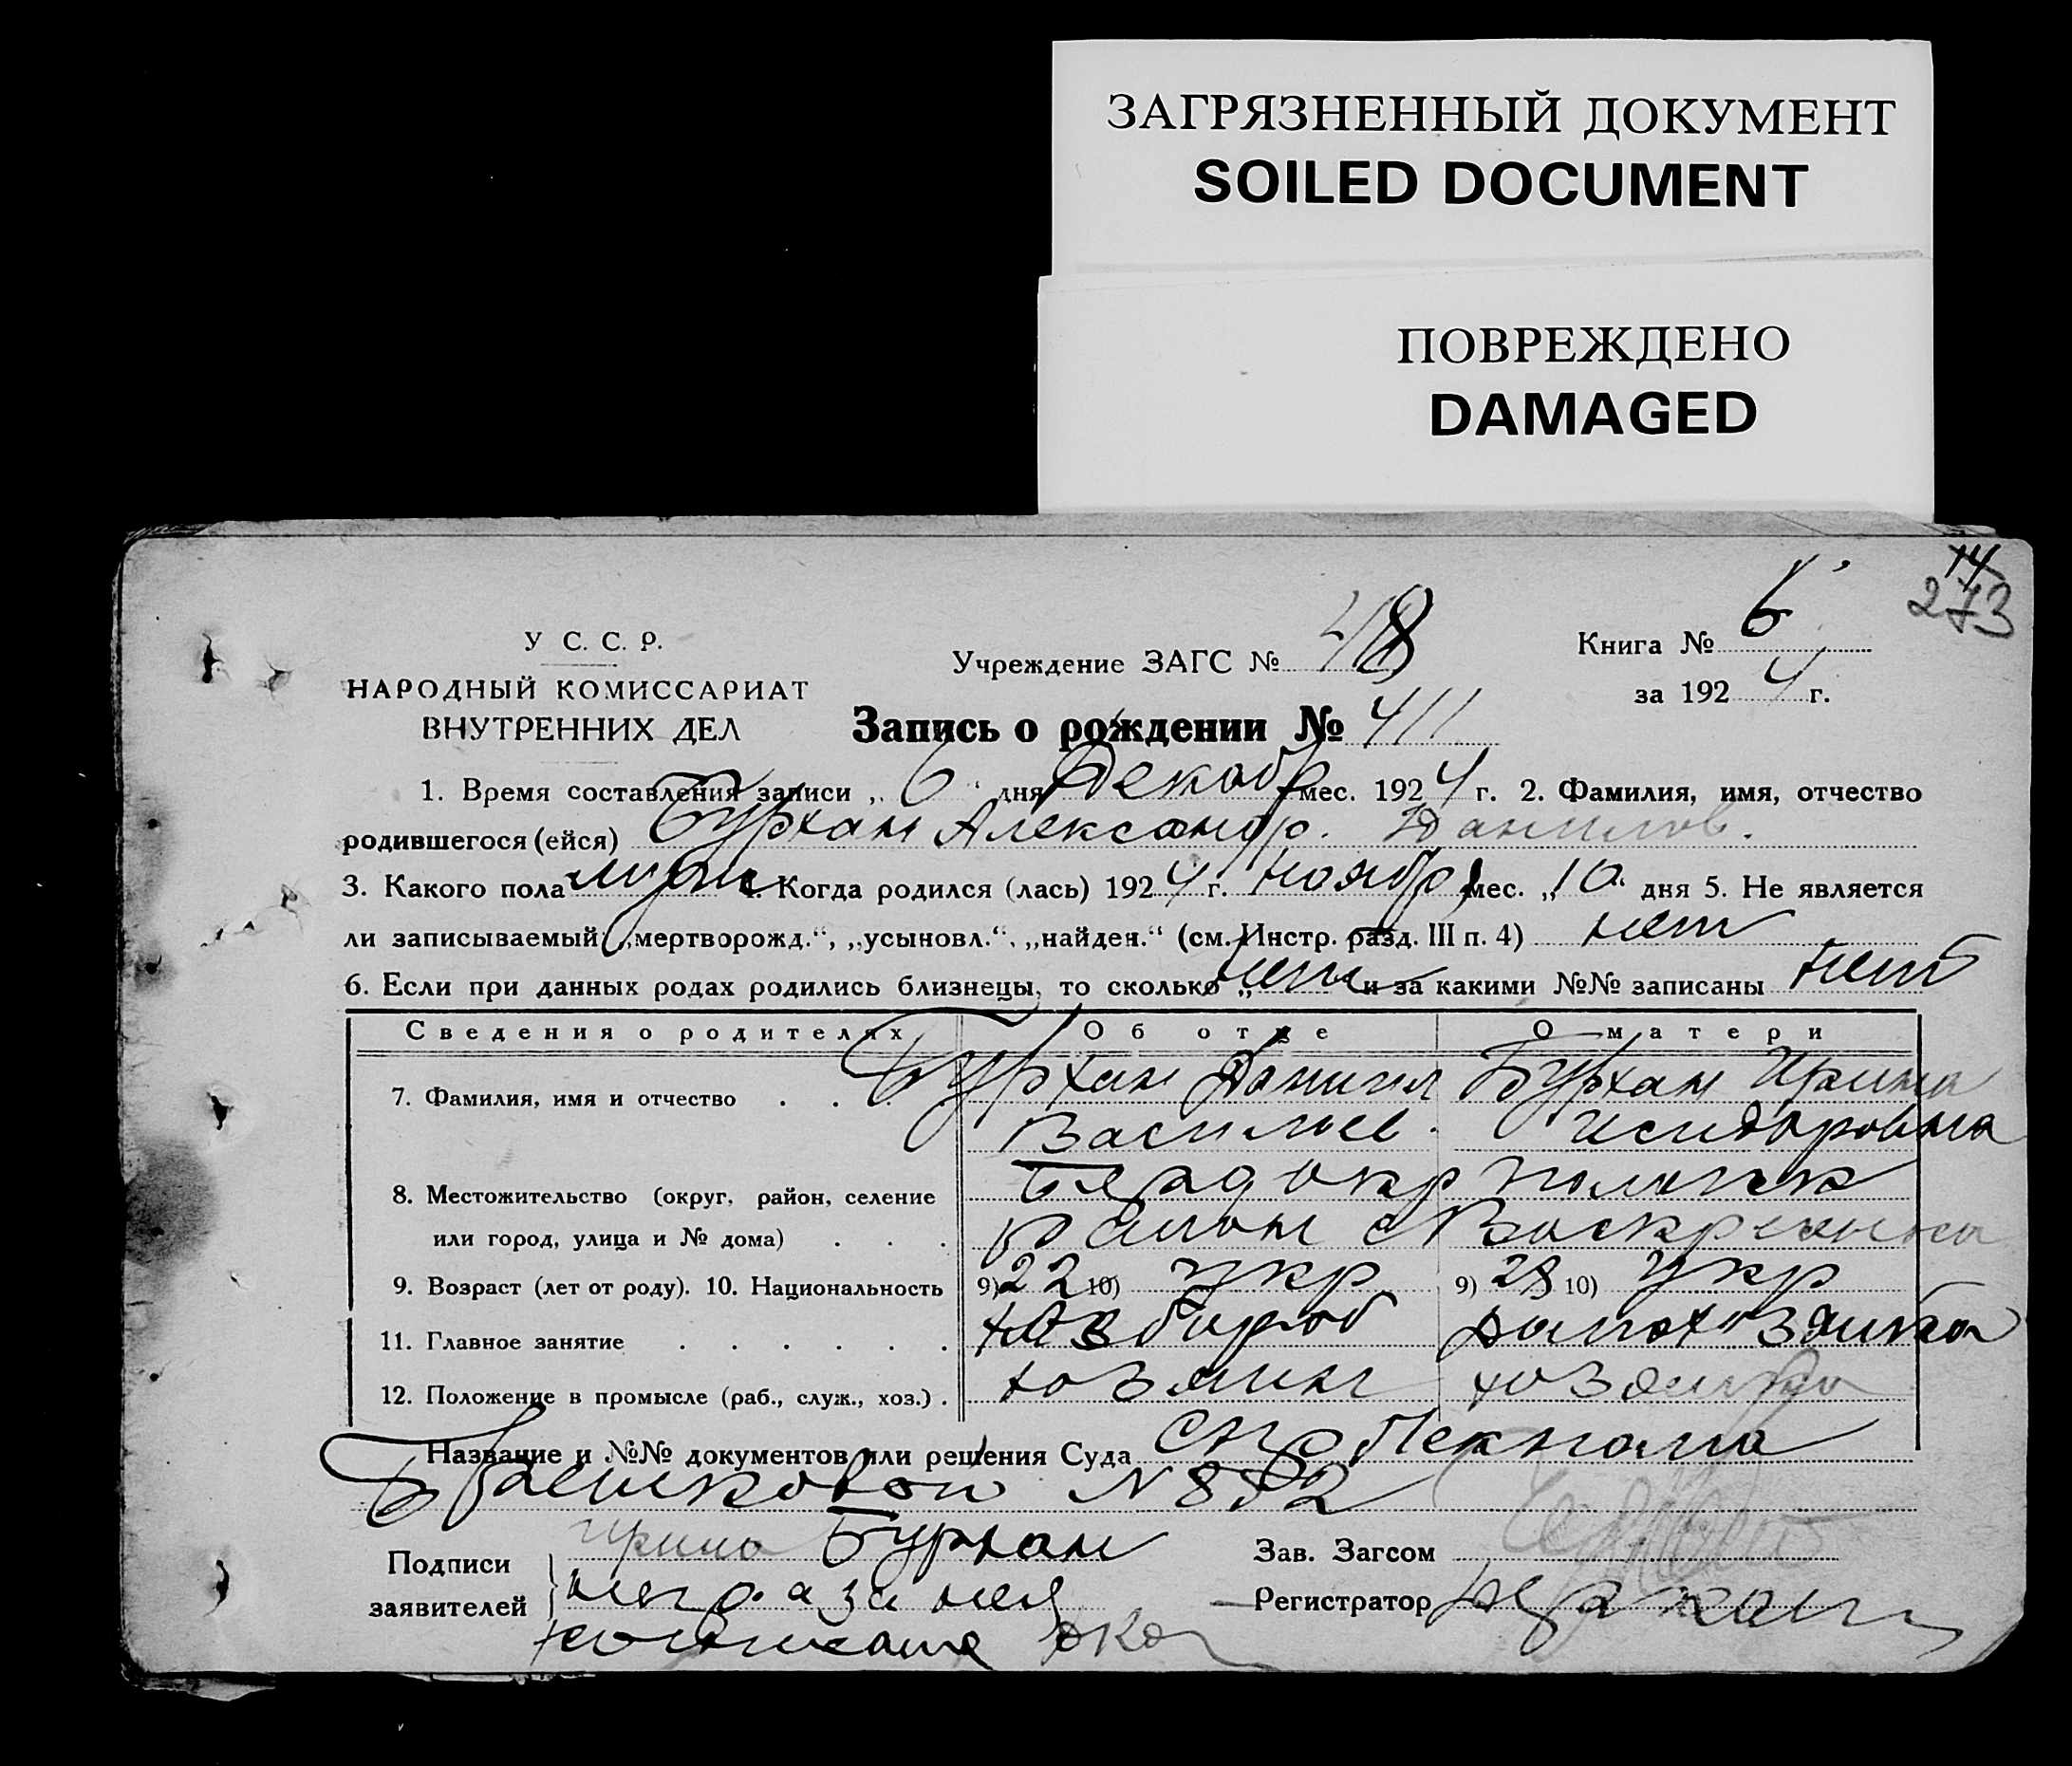 ЗАГРЯЗНЕННЫЙ ДОКУМЕНТ
SOILED DOCUMENT
ПОВРЕЖДЕНО
DAMAGED
14
273
У С. С. Р.
НАРОДНЫЙ КОМИССАРИАТ
ВНУТРЕННИХ ДЕЛ
Учреждение ЗАГС № 48
Книга № 6
за 1924 г.
Запись о рождении № 411
1. Время составления записи „6“ дня Декабр мес. 1924 г. 2. Фамилия, имя, отчество
родившегося (ейся) Бурхан Александр. Данилов.
3. Какого пола муж 4. Когда родился (лась) 1924 г. ноября мес. „10“ дня 5. Не является
ли записываемый: „мертворожд.“, „усыновл.“, „найден.“ (см. Инстр. разд. III п. 4) нет
6. Если при данных родах родились близнецы, то сколько „нет и за какими №№ записаны нет
Сведения о родителях Об отце О матери
7. Фамилия, имя и отчество . . . Бурхан Данил Бурхан Ирина
Васильев. Исидоровна
8. Местожительство (округ, район, селение Бердокр
или город, улица и № дома) . . . район с
9. Возраст (лет от роду). 10. Национальность 9) 22 10) укр 9) 28 10) укр
11. Главное занятие . . . . . . хлебороб домохозяйка
12. Положение в промысле (раб., служ., хоз.) . хозяин хозяйка
Название и №№ документов или решения Суда
№ 872
Подписи заявителей Ирина Бурхан
Зав. Загсом
Регистратор